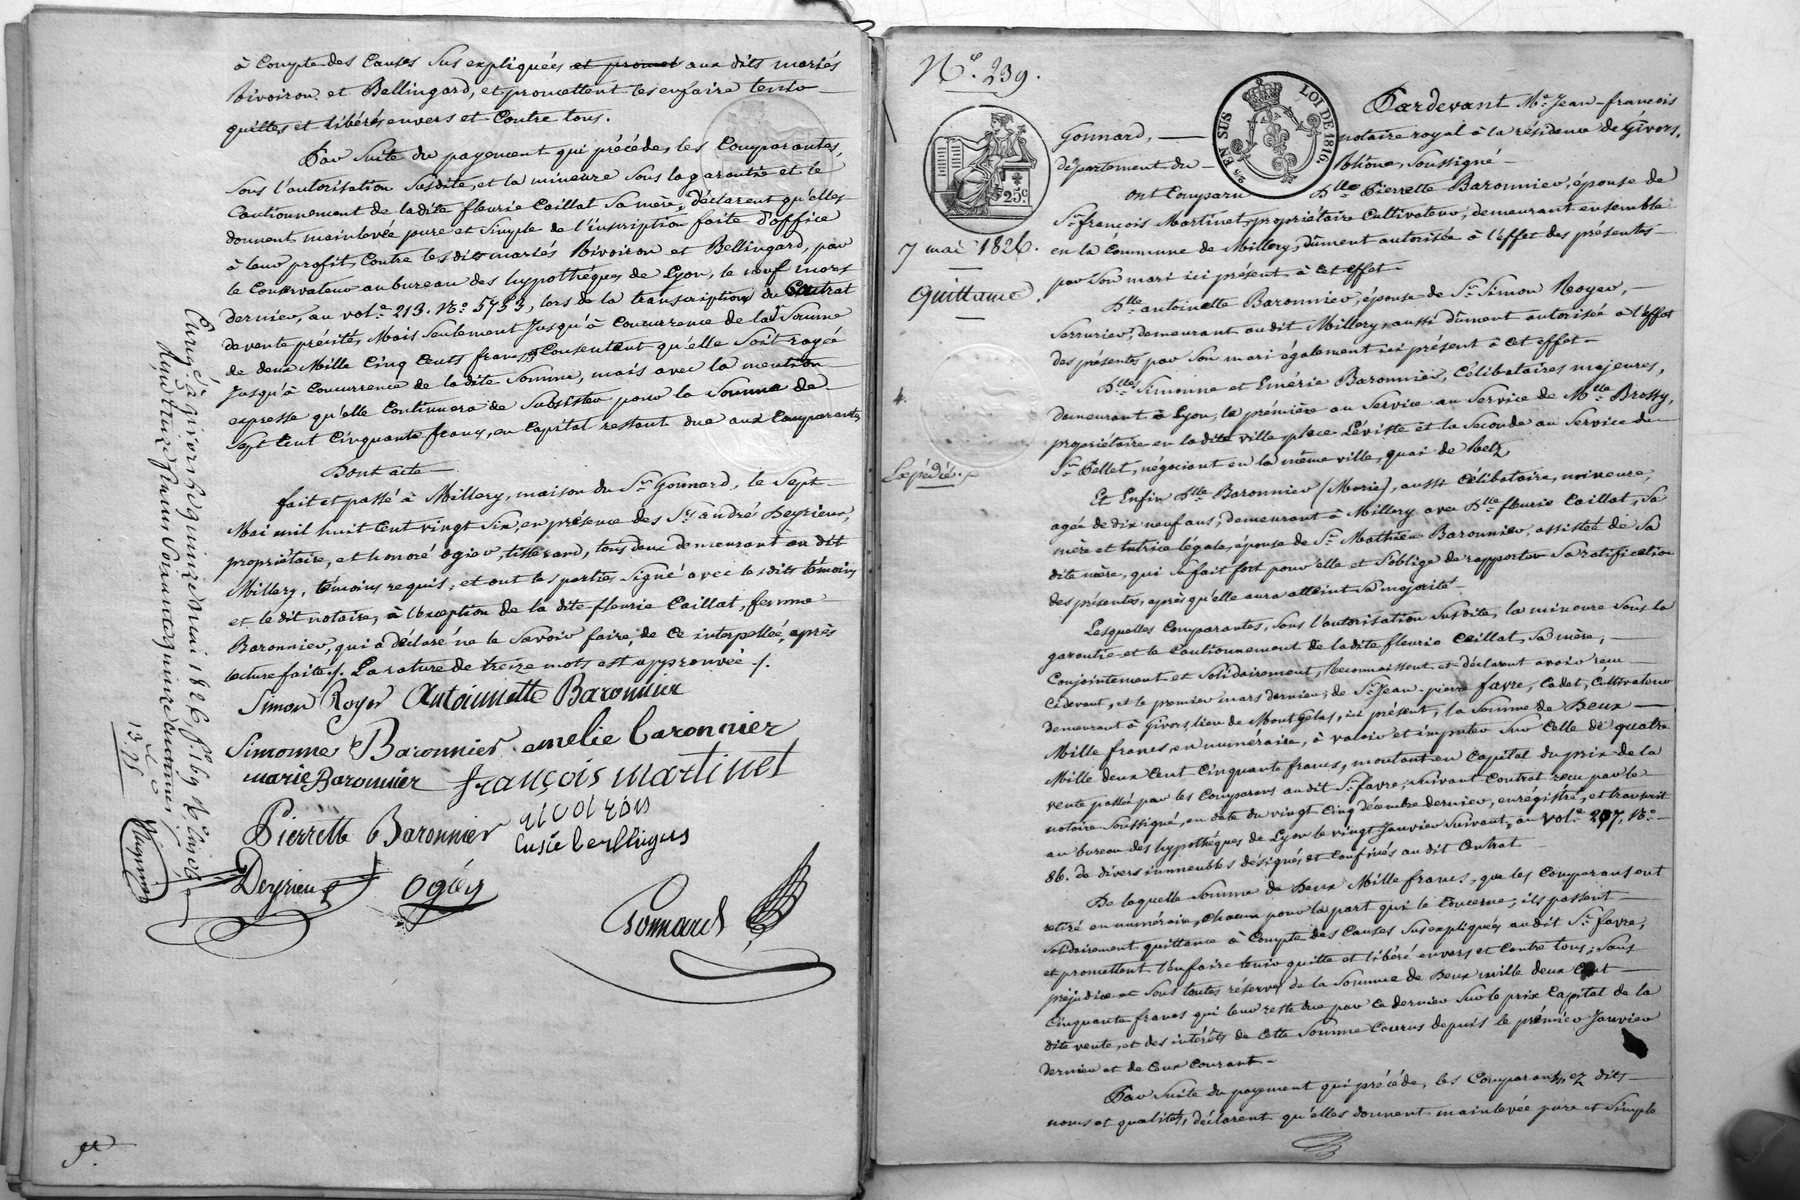 à Compte des Causes Sus expliquées et promet aux dits mariés
Bivoiron et Bellingard, et promettent les en faire tenir
quittes et libérés envers et Contre tous.
Par Suite du payement qui précède, les Comparantes,
Sous l'autorisation Susdite, et la mineure Sous la garantie et le
Cautionnement de ladite fleurie Caillat Sa mère, déclarent qu'elles
donnent mainlevée pure et Simple de l'inscription faite d'office
à leur profit, Contre les dits mariés Bivoiron et Bellingard, par
le Conservateur au bureau des hypothèques de Lyon, le neuf mars
dernier, au vol.e 213. N.o 5753, lors de la transcription du Contrat
de vente précité, Mais Seulement Jusqu'à Concurrence de la Somme
de deux Mille Cinq Cents francs, Consentant qu'elle Soit rayée
Jusqu'à Concurrence de la dite Somme, mais avec la mention
expresse qu'elle Continuera de Subsister pour la Somme de
Sept Cent Cinquante francs, en Capital restant due aux Comparantes,
Dont acte
fait et passé à Millery, maison du S.r Gonnard, le Sept
Mai mil huit Cent vingt Six, en présence des S.rs andré Deyrieux,
propriétaire, et honoré ogier, tisserand, tous deux demeurant au dit
Millery, témoins requis, et ont les parties Signé avec lesdits témoins
et le dit notaire, à l'exception de la dite fleurie Caillat, femme
Baronnier, qui a déclaré ne le Savoir faire, de Ce interpellée, après
lecture faite ./. La rature de treize mots est approuvée ./.
Simon Royer Antoinette Baronnier
Simonne Baronnier amelie baronnier
marie Baronnier françois martinet
Pierrette Baronnier
Deyrieux ogier
Gonnard
Enregé à givors le quinze mai 1826, f.o 169
N.o 239.
25c
EN SUS
LOI DE 1816.
7 mai 1826.
Quittance.
4.
Expédié.
Pardevant M.e Jean-francois
Gonnard, notaire royal à la résidence de Givors,
département du Rhône, Soussigné
ont Comparu D.lle Pierrette Baronnier, épouse de
S.r françois Martinet, propriétaire Cultivateur, demeurant ensemble
en la Commune de Millery, dûment autorisée à l'effet des présentes
par Son mari ici présent à cet effet
D.lle antoinette Baronnier, épouse de S.r Simon Royer,
Serrurier, demeurant audit Millery, aussi dûment autorisée à l'effet
des présentes par Son mari également ici présent à Cet effet
D.lles Simonne et Emérie Baronnier, Célibataires majeures,
demeurant à Lyon, la première au Service au Service de M.lle Brossy,
propriétaire en la dite ville place Léviste et la Seconde au Service du
S.r Pellet, négociant en la même ville, quai de Retz
Et Enfin D.lle Baronnier (Marie), aussi Célibataire, mineure,
agée de dix neuf ans, demeurant à Millery avec D.lle fleurie Caillat, Sa
mère et tutrice légale, épouse de S.r Mathieu Baronnier, assistée de Sa
dite mère, qui Se fait fort pour elle et S'oblige de rapporter Sa ratification
des présentes, après qu'elle aura atteint Sa majorité
Lesquelles Comparantes, Sous l'autorisation Susdite, la mineure Sous la
garantie et le Cautionnement de ladite fleurie Caillat, Sa mère,
Conjointement et Solidairement, Reconnaissent et déclarent avoir reçu
Cidevant, et le premier mars dernier, de S.r Jean-pierre favre, Cadet, Cultivateur
demeurant à Givors, lieu de Mont Gelas, ici présent, la Somme de Deux
Mille francs, en numéraire, à valoir et imputer Sur Celle de quatre
Mille deux Cent Cinquante francs, montant en Capital du prix de la
vente passée par les Comparans au dit S.r favre, Suivant Contrat reçu par le
notaire Soussigné, en date du vingt Cinq décembre dernier, enregistré, et transcrit
au bureau des hypothèques de Lyon le vingt Janvier Suivant, au vol.e 207, N.o
86. de divers immeubles désignés et Confinés au dit Contrat
De laquelle Somme de Deux Mille francs, que les Comparans ont
retiré en numéraire, Chacun pour la part qui le Concerne, ils passent
Solidairement quittance à Compte des Causes Susexpliquées au dit S.r favre,
et promettent l'en faire tenir quitte et libéré envers et Contre tous, Sans
préjudice et Sous toutes réserves de la Somme de Deux mille deux Cent
Cinquante francs qui leur reste due par Ce dernier Sur le prix Capital de la
dite vente, et des intérêts de Cette Somme Courus depuis le prémier Janvier
dernier et de Ceux Courant
Par Suite du payement qui précède, les Comparantes, ez dits
noms et qualités, déclarent qu'elles donnent mainlevée pure et Simple